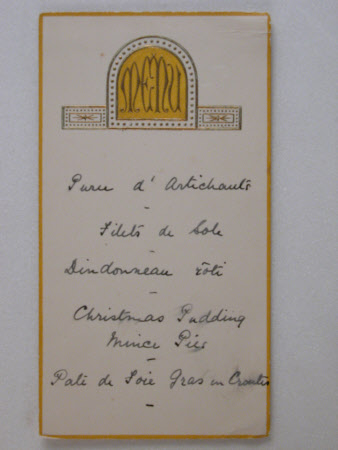 MENU
Puree d'Artichauts
-
Filets de Sole
-
Dindonneau rôti
-
Christmas Pudding
Mince Pies
-
Pate de Foie Gras en Croutes
-